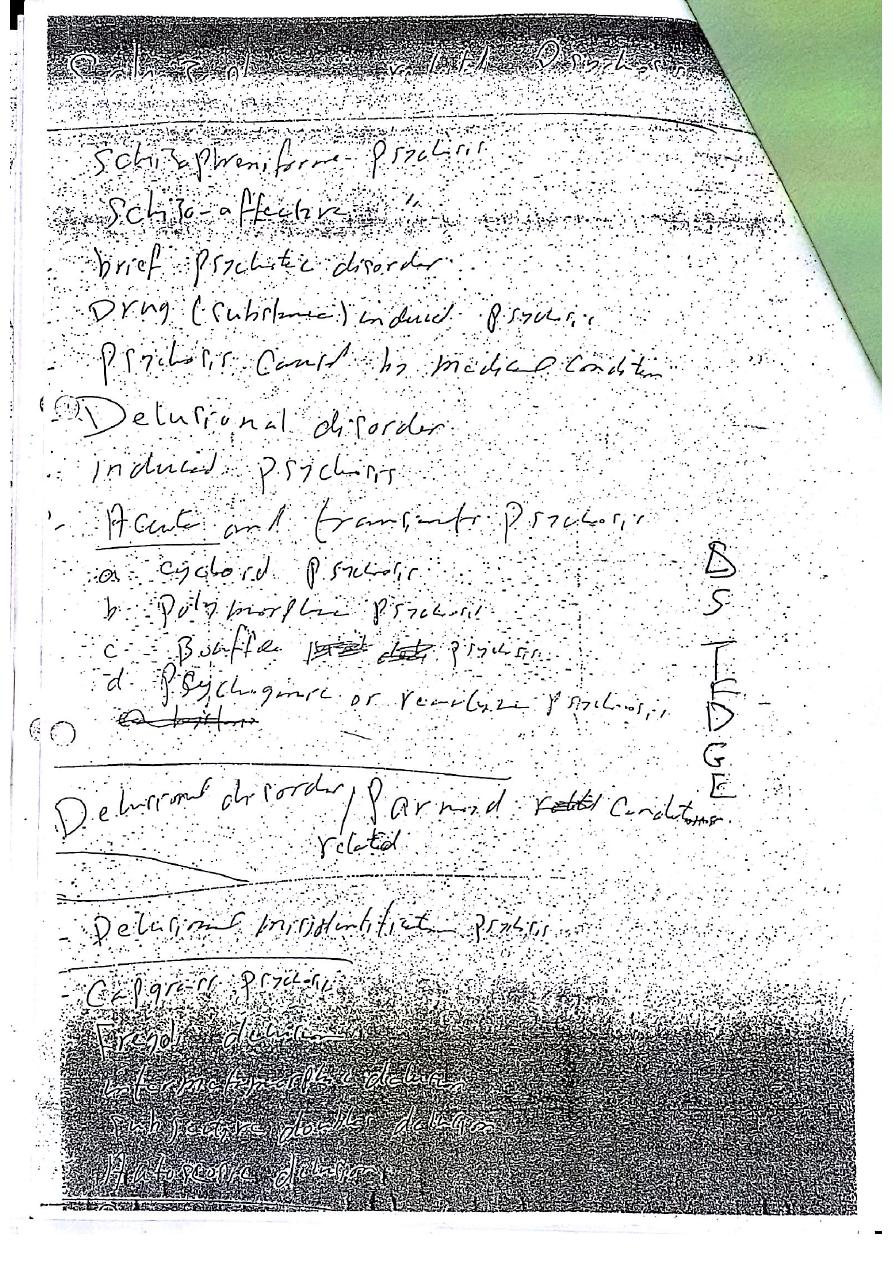 Schizophreniform psychosis
Schizo-affective "
brief psychotic disorder
Drug (substance) induced psychosis
- Psychosis caused by medical condition
Delusional disorder
- induced psychosis
- Acute and transient psychosis
a cycloid psychosis
b polymorphic psychosis
c - Bouffee psychosis
d Psychogenic or reactive psychosis
B
S
T
E
D
G
E
Delusional disorder / Paranoid conditions
related
- Delusional misidentification psychosis
- Capgrass psychosis
Fregoli delusion
intermetamorphosis delusion
subjective doubles delusion
Autoscopic delusion